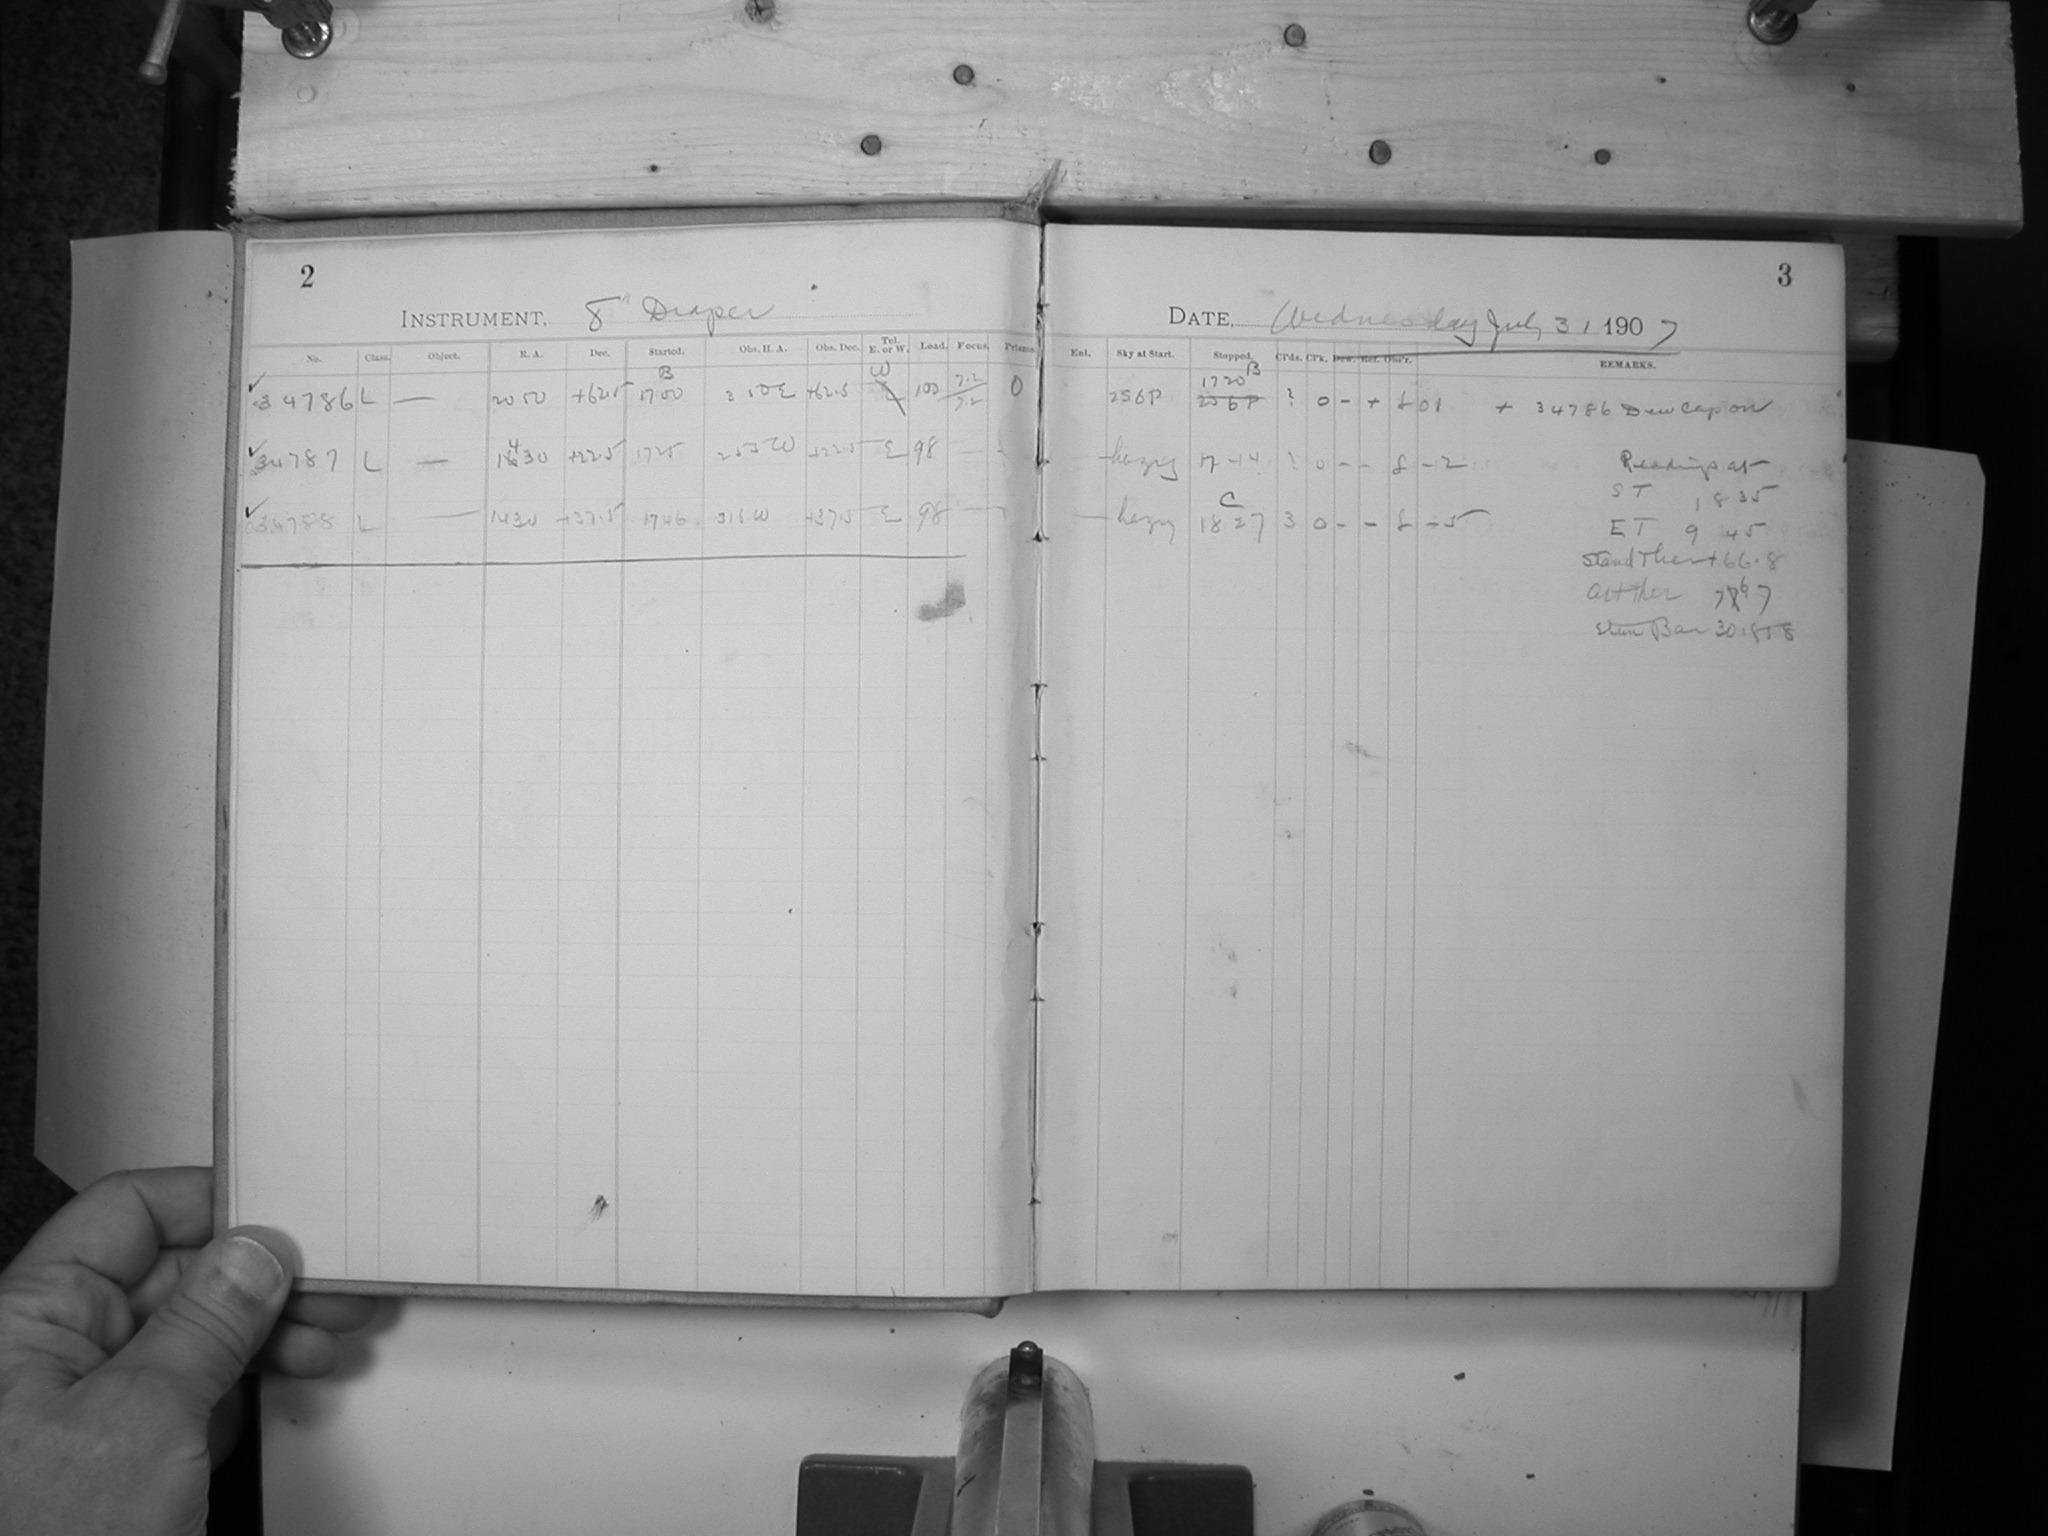 2
INSTRUMENT, 8" Draper
No. Class. Object. R. A. Dec. Started. Obs. H. A. Obs. Dec. Tel. E. or W. Load. Focus. Prisms.
34786 L — 20 50 +62.5 B 17 00 3 50 E +62.5 W 100 7.2 7.2 0
34787 L — 14 30 +22.5 17 25 2 55 W +22.5 E 98
34788 L — 14 30 +37.5 17 46 316 W +37.5 E 98
3
DATE, Wednesday July 31 1907
Enl. Sky at Start. Stopped. Cl'ds. Cl'k. Dew. Ref. Obs'r. REMARKS.
256P 17 20 B 256P ? 0 - + £ 01 + 34786 Dew Cap on
hazy 17 - 14 ? 0 - - £ - 2 Readings at
ST 18 35
hazy C 18 27 3 0 - - £ - 5 ET 9 45
Stand Ther +66.8
Att Ther
Bar